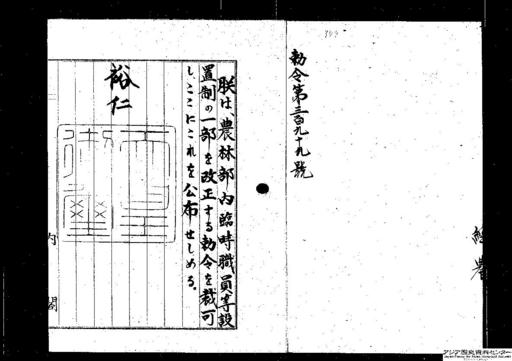 勅令第三百九十九號
朕は、農林部内臨時職員等設
置制の一部を改正する勅令を裁可
し、ここにこれを公布せしめる。
裕仁
内閣
アジア歴史資料センター